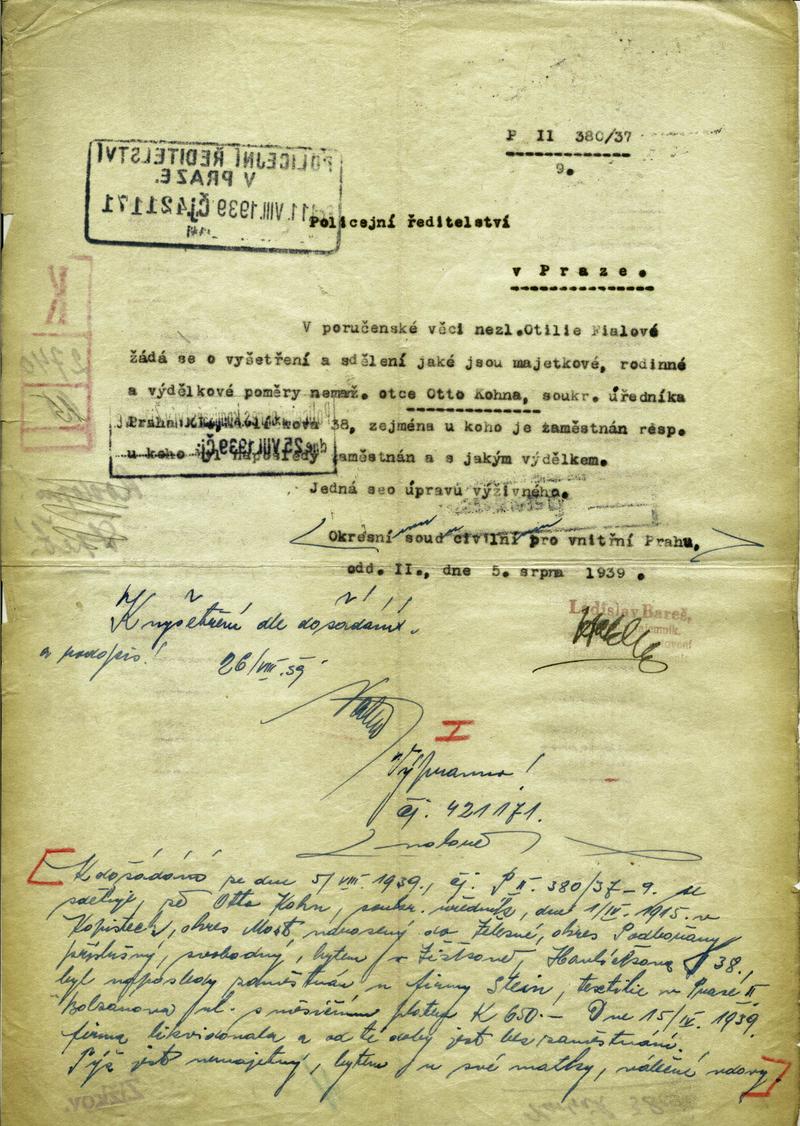 P II 380/37
9.
POLICEJNÍ ŘEDITELSTVÍ
V PRAZE.
11.VIII.1939 Čj421171
Policejní ředitelství
v Praze.
V poručenské věci nezl.Otilie Fialové
žádá se o vyšetření a sdělení jaké jsou majetkové, rodinné
a výdělkové poměry nemaž. otce Otto Kohna, soukr. úředníka
Praha 38, zejména u koho je zaměstnán resp.
u koho byl naposledy zaměstnán a s jakým výdělkem.
dne 25.VIII.1939
Jedná seo úpravu výživného.
Okresní soud civilní pro vnitřní Prahu,
odd. II., dne 5. srpna 1939.
Ladislav Bareš,
2740
15
K vyšetření dle dožádání.
a podpis!
26/VIII.39
I
Výpravno!
čj. 421171.
K dožádání ze dne 5/VIII. 1939., čj. P II. 380/37-9. se
sděluje, že Otto Kohn, soukr. úředník, dne 1/IV. 1915. v
Kopistech, okres Most narozený do Želesné, okres Podbořany
příslušný, svobodný, bytem v Žižkově, Havlíčkova 38,
byl naposledy zaměstnán u firmy Stein, textilie v Praze II
Bolzanova ul. s měsíčním platem K 650.- Dne 15/IV. 1939.
firma likvidovala a od té doby jest bez zaměstnání.
Týž jest nemajetný, bytem u své matky, válečné vdovy
ŽIŽKOV.